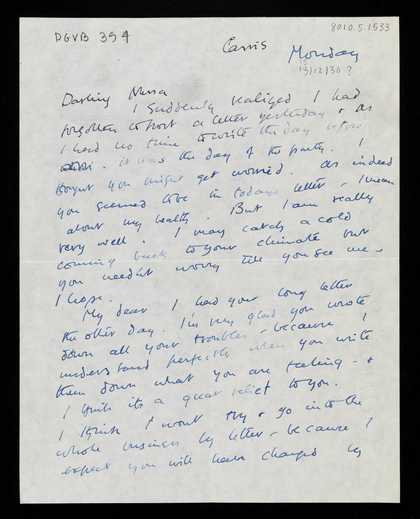 DGVB 394
8010.5.1533
Cassis
Monday
15/12/30 ?
Darling Nessa
I suddenly realized I had
forgotten to post a letter yesterday & as
I had no time to write the day before
it was the day of the party. I
you might get worried. as indeed
you seemed to be in todays letter - I mean
about my health. But I am really
very well. I may catch a cold
coming back to your climate but
you needn't worry till you see me -
I hope.
My dear I had your long letter
the other day. I'm very glad you wrote
down all your troubles, because I
understand perfectly when you write
them down what you are feeling - &
I think its a great relief to you.
I think I won't try & go into the
whole by letter - because I
expect you will have changed by